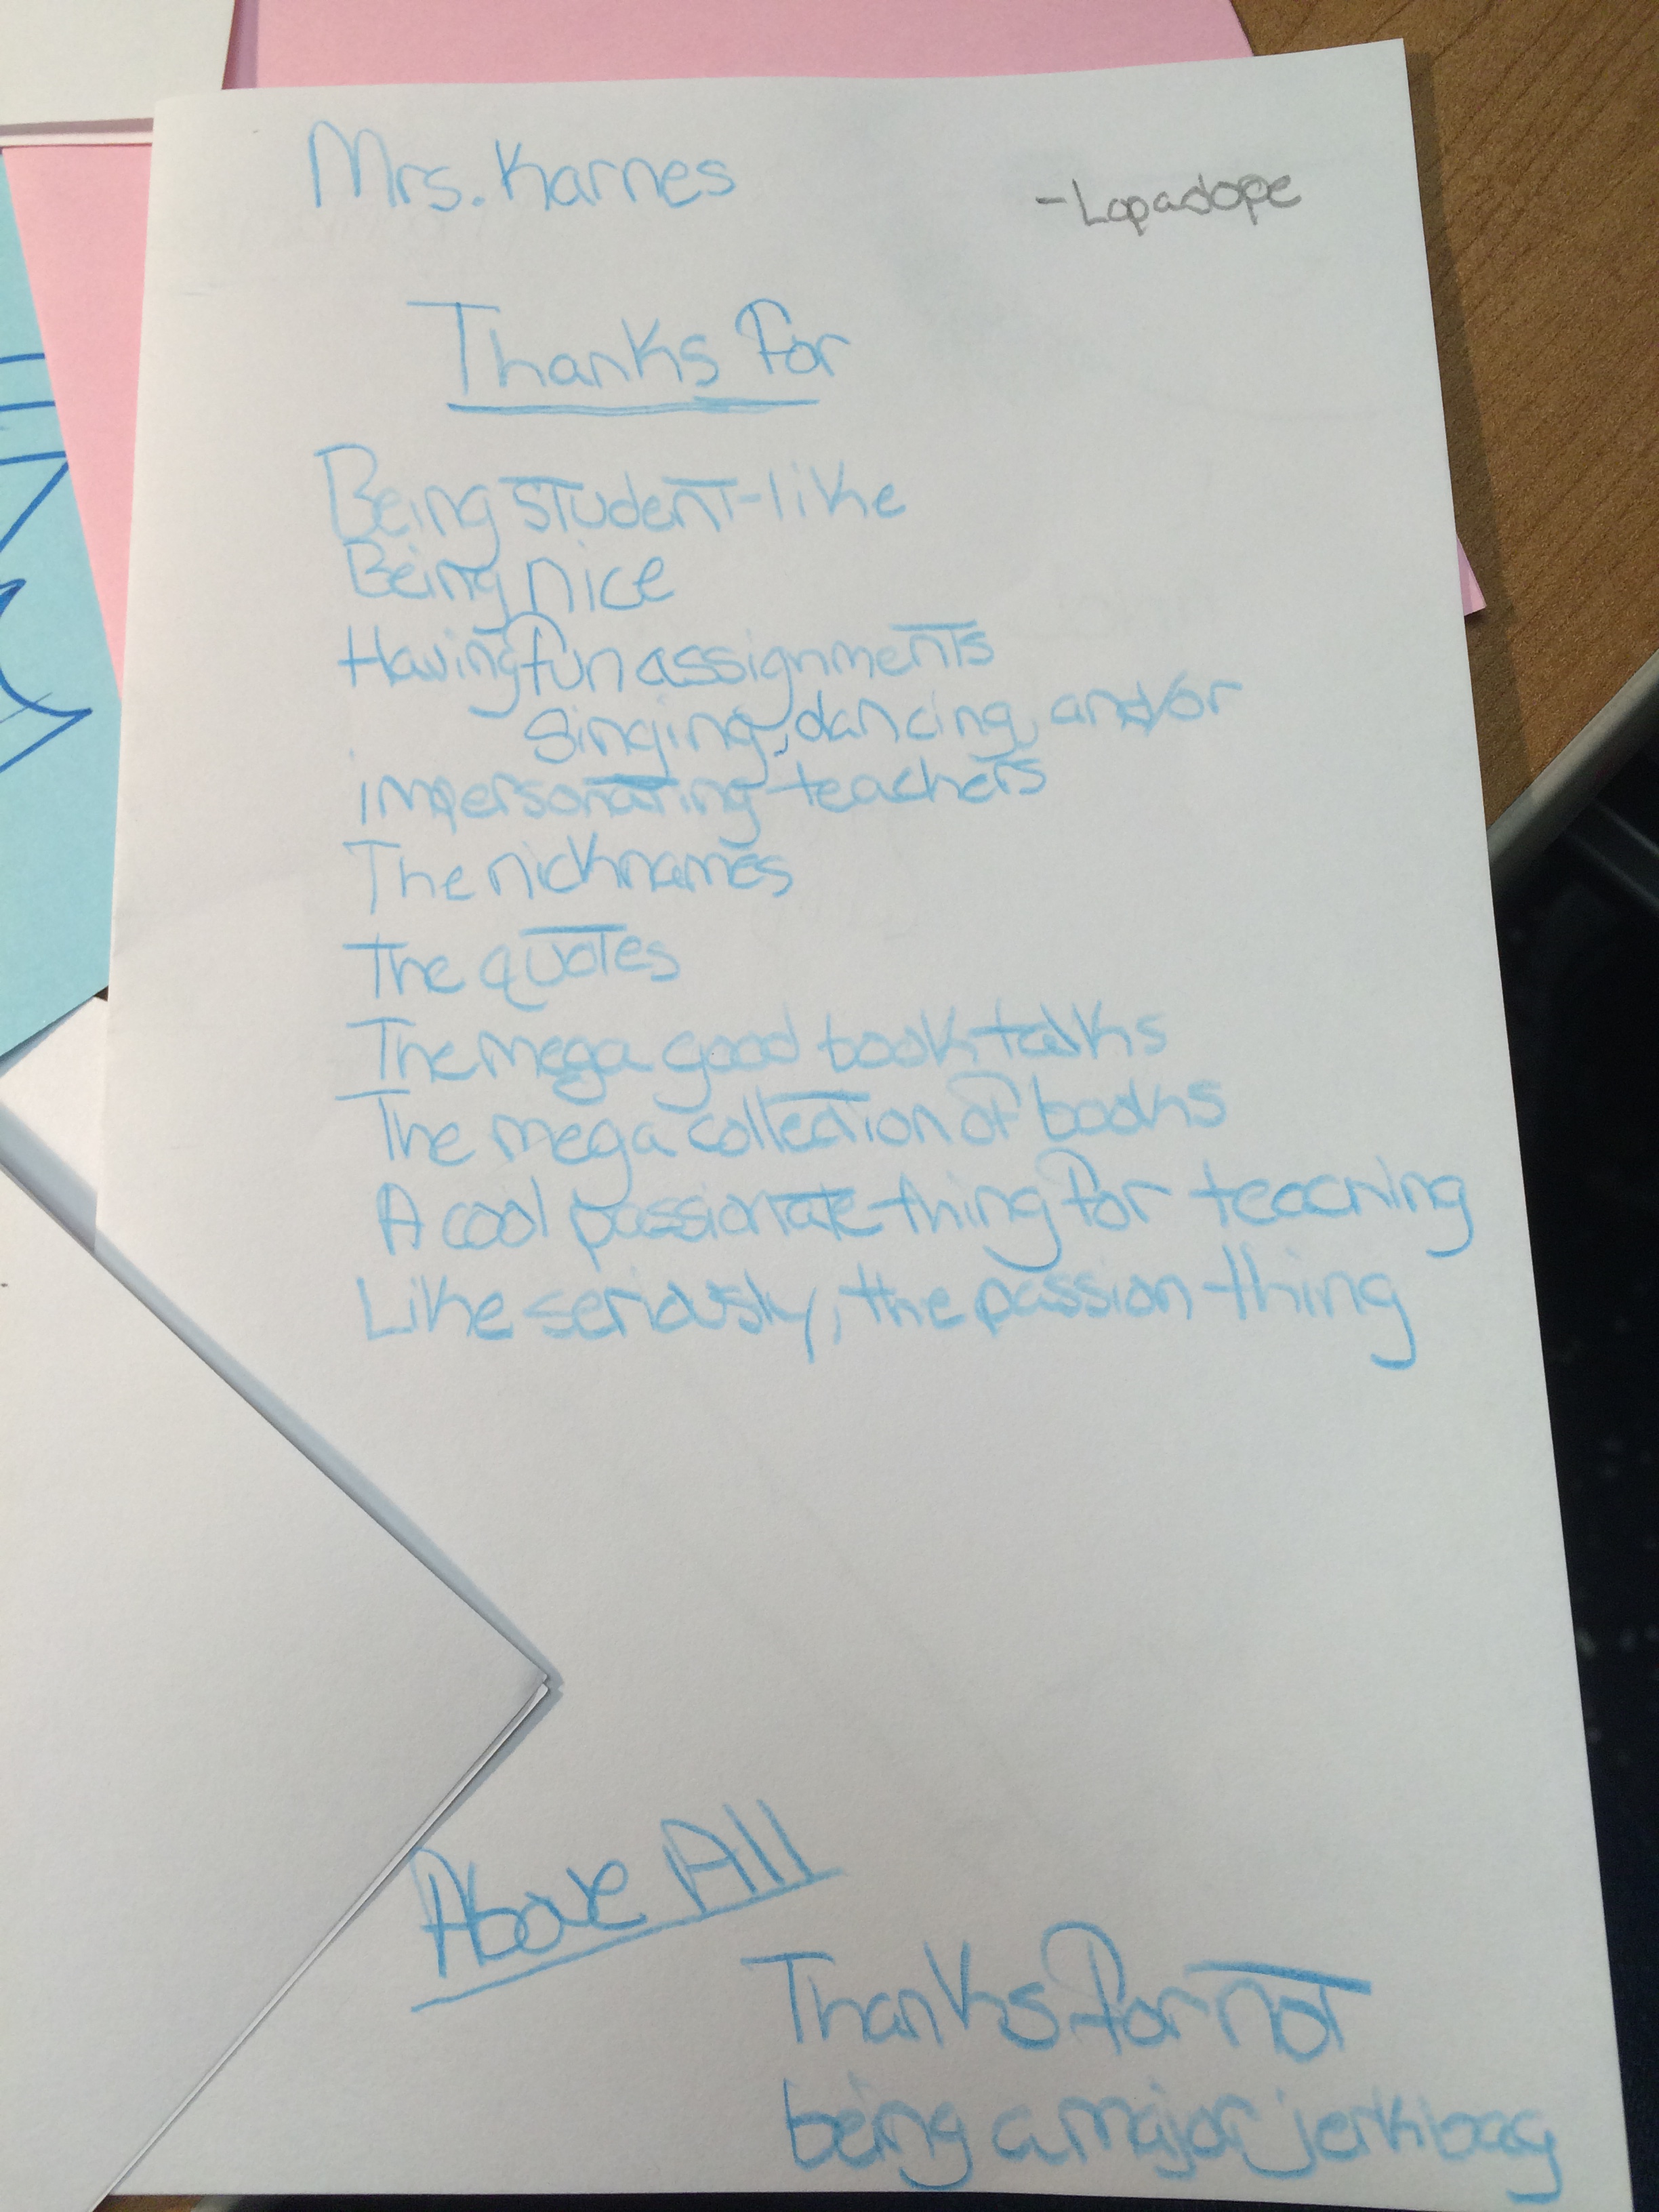 Mrs. Karnes
-Lopadope
Thanks For
Being student-like
Being nice
Having fun assignments
singing, dancing, and/or
impersonating teachers
The nicknames
The quotes
The mega good book talks
The mega collection of books
A cool passionate thing for teaching
Like seriously, the passion thing
Above All
Thanks for not
being a major jerkbag